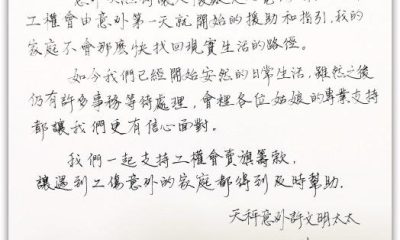 工權會由意外第一天就開始的援助和指引,我的
家庭不會那麼快找回現實生活的路徑。
如今我們已經開始安然的日常生活,雖然之後
仍有許多事務等待處理,會裡各位姑娘的專業支持
都讓我們更有信心面對。
我們一起支持工權會賣旗籌款,
讓遇到工傷意外的家庭都得到及時幫助.
天秤意外許文明太太